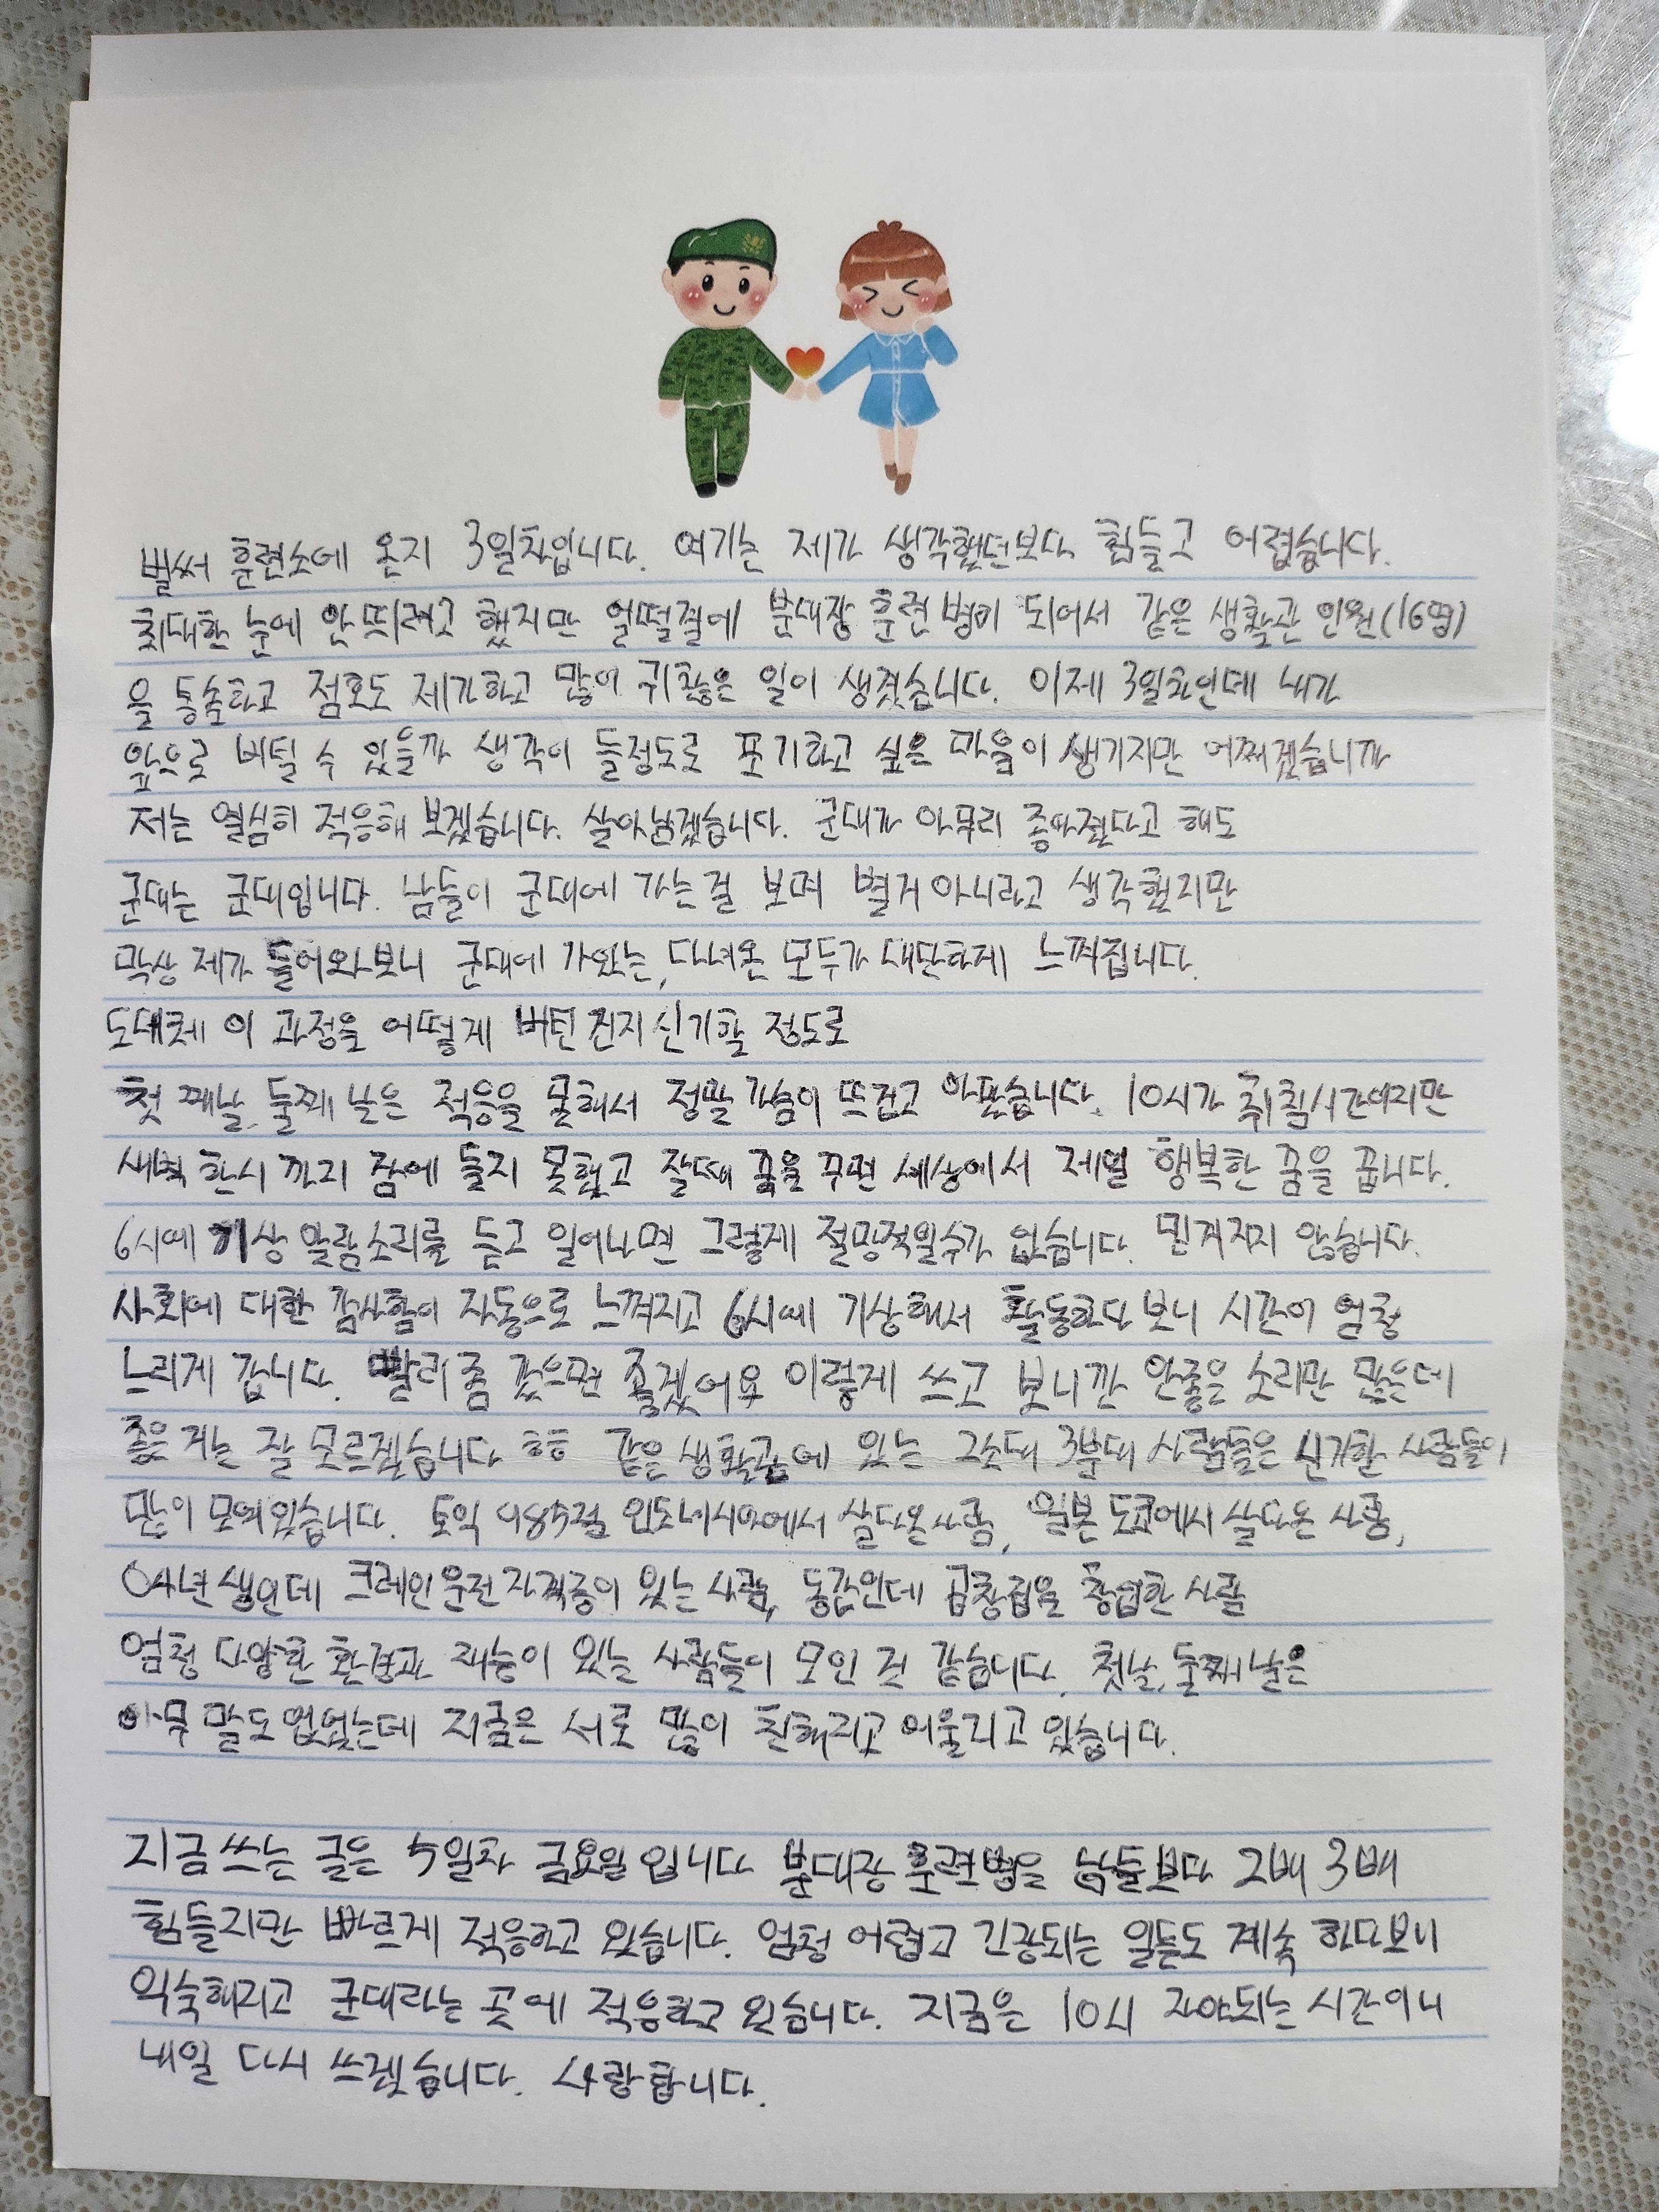 벌써 훈련소에 온지 3일차입니다. 여기는 제가 생각했던보다 힘들고 어렵습니다.
최대한 눈에 안 뜨려고 했지만 얼떨결에 분대장 훈련병이 되어서 같은 생활관 인원(16명)
을 통솔하고 점호도 제가하고 많이 귀찮은 일이 생겼습니다. 이제 3일차인데 내가
앞으로 버틸 수 있을까 생각이 들정도로 포기하고 싶은 마음이 생기지만 어쩌겠습니까
저는 열심히 적응해 보겠습니다. 살아남겠습니다. 군대가 아무리 좋아졌다고 해도
군대는 군대입니다. 남들이 군대에 가는걸 보며 별거 아니라고 생각했지만
막상 제가 들어와보니 군대에 가있는, 다녀온 모두가 대단하게 느껴집니다.
도대체 이 과정을 어떻게 버틴건지 신기할 정도로
첫째날, 둘째 날은 적응을 못해서 정말 가슴이 뜨겁고 아팠습니다. 10시가 취침시간이지만
새벽 한시 까지 잠에 들지 못했고 잘때 꿈을 꾸면 세상에서 제일 행복한 꿈을 꿉니다.
6시에 기상 알람소리를 듣고 일어나면 그렇게 절망적일수가 없습니다. 믿겨지지 않습니다.
사회에 대한 감사함이 자동으로 느껴지고 6시에 기상해서 활동하다 보니 시간이 엄청
느리게 갑니다. 빨리 좀 갔으면 좋겠어요 이렇게 쓰고 보니깐 안좋은 소리만 많은데
좋은거는 잘 모르겠습니다 ㅎㅎ 같은 생활관에 있는 2소대 3분대 사람들은 신기한 사람들이
많이 모여있습니다. 토익 985점 인도네시아에서 살다온사람, 일본 도쿄에서 살다온 사람,
04년생인데 크레인운전자격증이 있는 사람, 동갑인데 곱창집을 창업한 사람
엄청 다양한 환경과 재능이 있는 사람들이 모인 것 같습니다. 첫날, 둘째날은
아무 말도 없었는데 지금은 서로 많이 친해지고 어울리고 있습니다.
지금 쓰는 글은 5일차 금요일 입니다 분대장 훈련병은 남들보다 2배 3배
힘들지만 빠르게 적응하고 있습니다. 엄청 어렵고 긴장되는 일들도 계속 하다보니
익숙해지고 군대라는 곳에 적응하고 있습니다. 지금은 10시 자야되는 시간이니
내일 다시 쓰겠습니다. 사랑합니다.